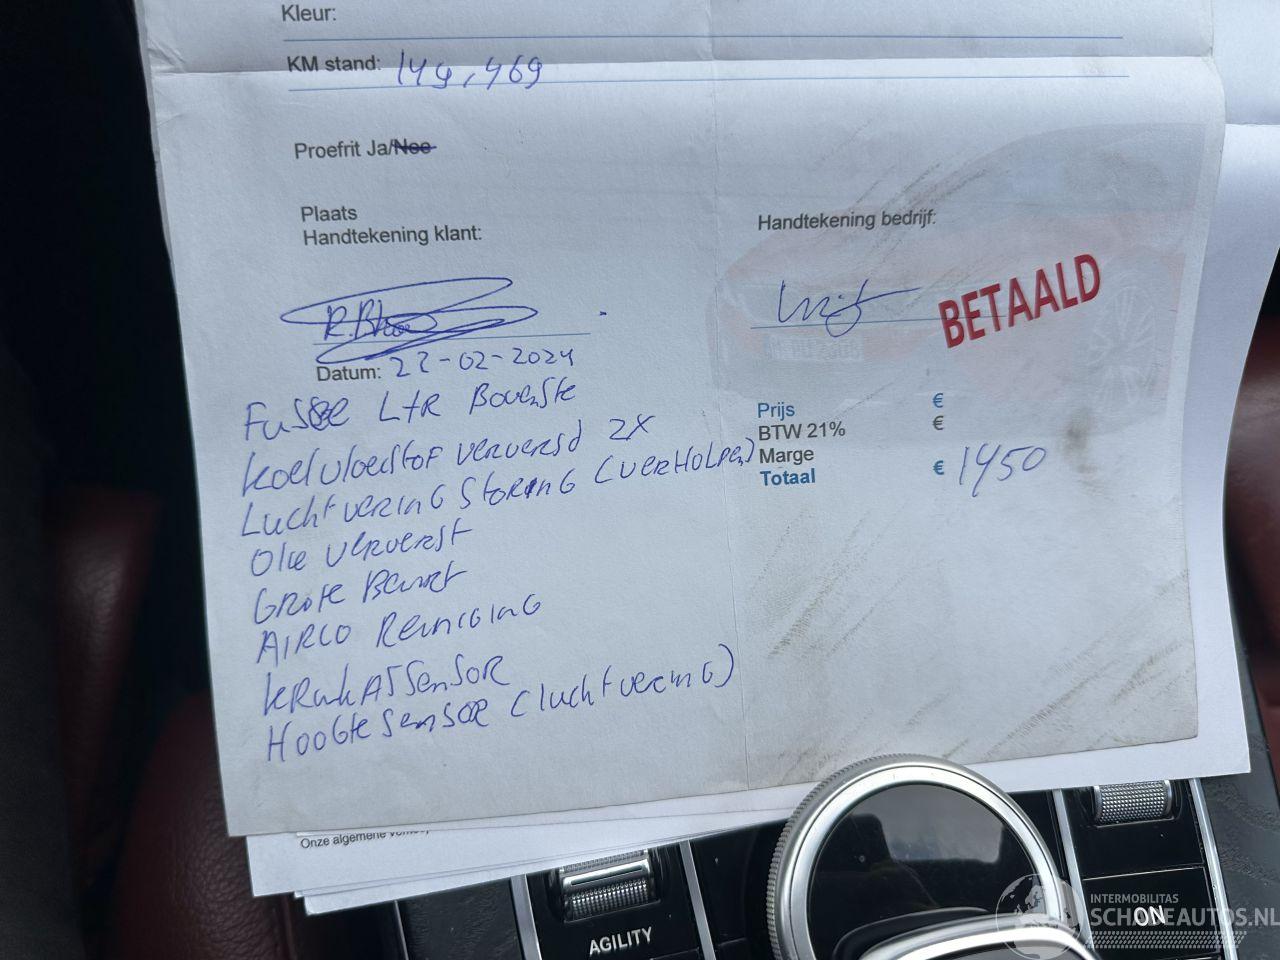 Kleur:
KM stand: 149,469
Proefrit Ja/Nee
Plaats
Handtekening klant:
Handtekening bedrijf:
BETAALD
Datum: 22-02-2024
Fusee L+R Bovenste
Koelvloeistof ververst 2x
Luchtvering Storing (verholpen)
Olie ververst
Grote Beurt
Airco Reiniging
KRukAssensor
Hoogtesensor (luchtvering)
Prijs €
BTW 21% €
Marge
Totaal € 1450
Onze algemene
AGILITY
ON
INTERMOBILITAS
SCHADEAUTOS.NL